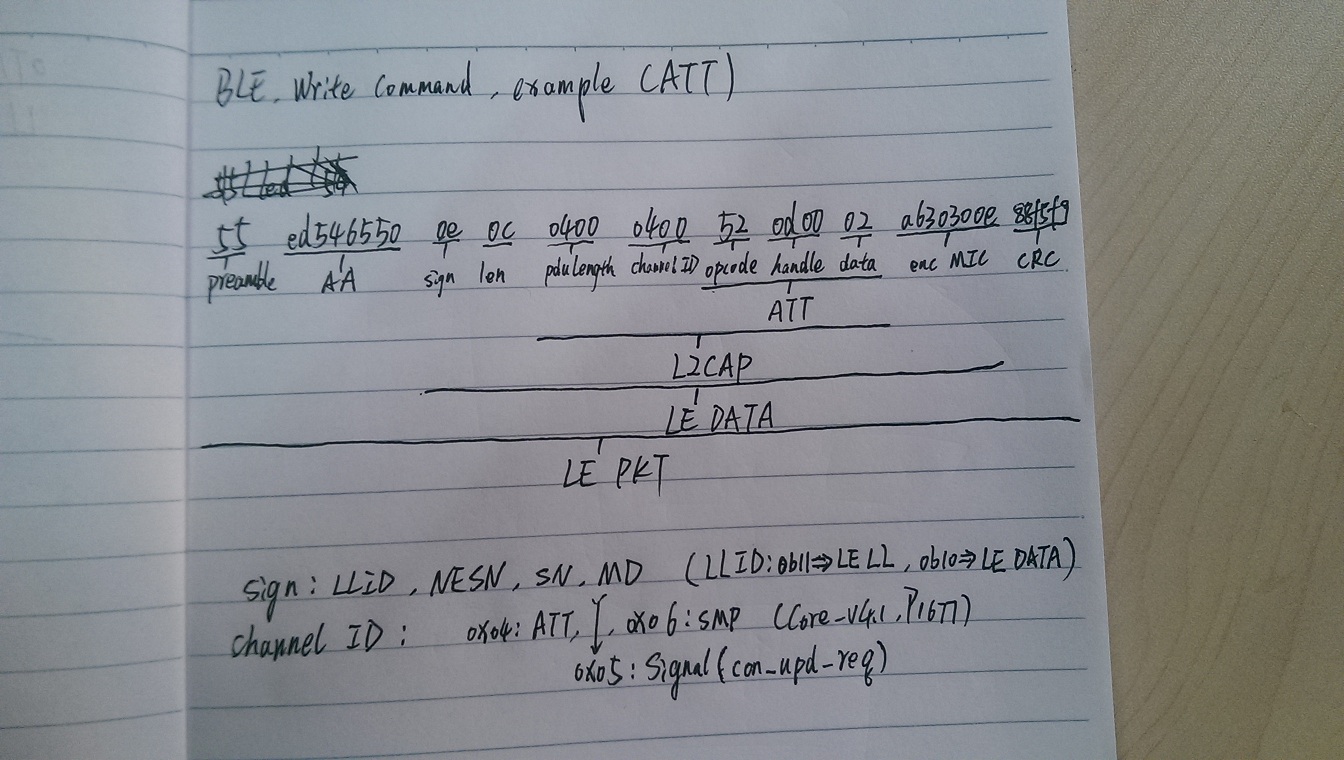 BLE. Write Command, example (ATT)
55 ed546550 0e 0c 0400 0400 52 0d00 02 a630300e 88f5f9
preamble AA sign len pdu length channel ID opcode handle data enc MIC CRC
ATT
L2CAP
LE DATA
LE PKT
sign: LLID, NESN, SN, MD (LLID:0b11⇒LE LL, 0b10⇒LE DATA)
channel ID: 0x04: ATT, , 0x06: SMP (Core-V4.1, P1677)
0x05: Signal (con-upd-req)